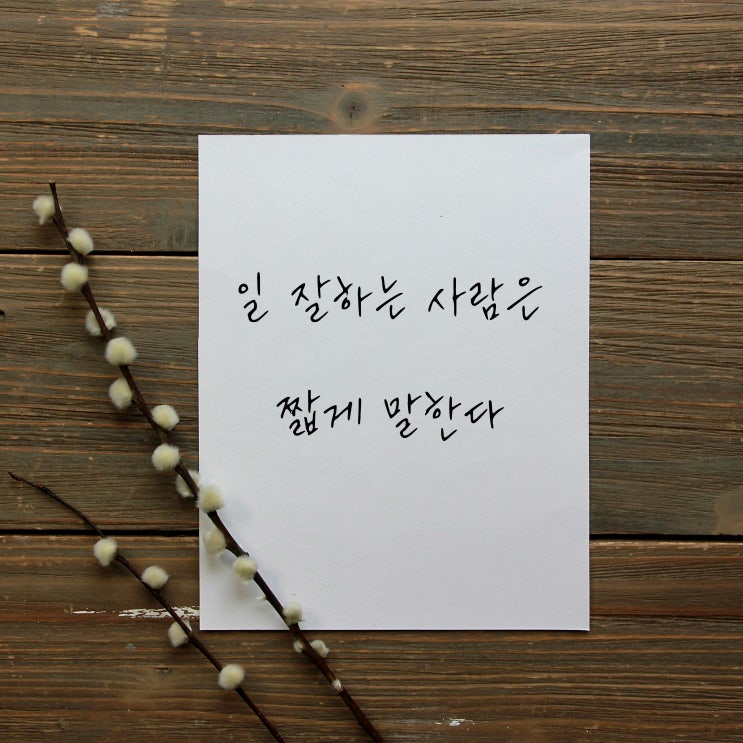 일 잘하는 사람은
짧게 말한다